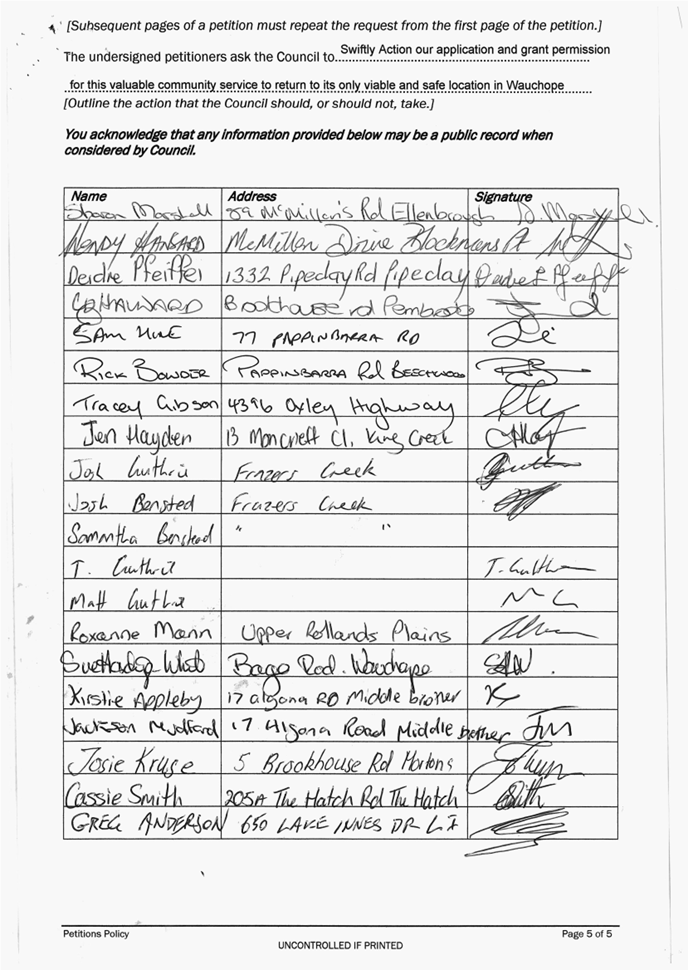 [Suhsequent pages of a petition must repeat the request from the first page of the petition.]
The undersigned petitioners ask the Council to Swiftly Action our application and grant permission
for this valuable community service to return to its only viable and safe location in Wauchope
[Outline the action that the Council should, or should not, take.]
You acknowledge that any information provided below may be a public record when
considered by Council.
Name Address Signature
Sharon Marshall McMillan's Rd Ellenbrough
WENDY McMillan Drive
Deidre Pfeiffer 1332 Pipeclay Rd Pipeclay
HAYWARD Brookhouse rd
SAM 77 PAPPINBARRA RD
RICK BOWDER PAPPINBARRA Rd BEECHWOOD
Tracey Gibson 4396 Oxley Highway
Jen Hayden 13 Moncrieff Cl, King Creek
Josh Guthrie Frazers Creek
Josh Bensted Frazers Creek
Samantha Benstead " "
T. Guthrie T. Guthrie
Matt Guthrie M G
Roxanne Mann Upper Rollands Plains
Bago Road. Wauchope
Kirstie Appleby 17 algona RD Middle brother K
Jackson Mudford 17 Algona Road Middle brother JM
Josie Kruse 5 Brookhouse Rd Mortons
Cassie Smith 205A The Hatch Rd The Hatch
GREG ANDERSON 650 LAKE INNES DR L I
Petitions Policy Page 5 of 5
UNCONTROLLED IF PRINTED